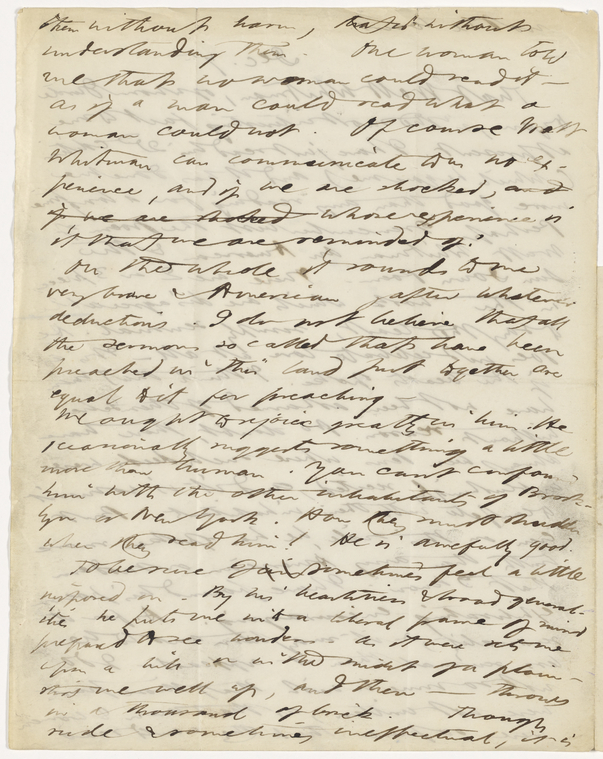 them without harm, that is, without
understanding them. One woman told
me that no woman could read it—
as if a man could read what a
woman could not. Of course Walt
Whitman can communicate to us no ex-
perience, and if we are shocked, and
if we are shocked whose experience is
it that we are reminded of?
On the whole it sounds to me
very brave & American after whatever
deductions. I do not believe that all
the sermons so called that have been
preached in this land put together are
equal to it for preaching—
We ought to rejoice greatly in him. He
occasionally suggests something a little
more than human. You cant confou-
him with the other inhabitants of Brook-
lyn or New York. How they must shudder
when they read him! He is awefully good.
To be sure I sometimes feel a little
imposed on. By his heartiness & broad general-
ities he puts me into a liberal frame of mind
prepared to see wonders—as it were sets me
upon a hill or in the midst of a plain—
stirs me well up, and then—throws
in a thousand of brick. Though
rude & sometimes ineffectual, it is